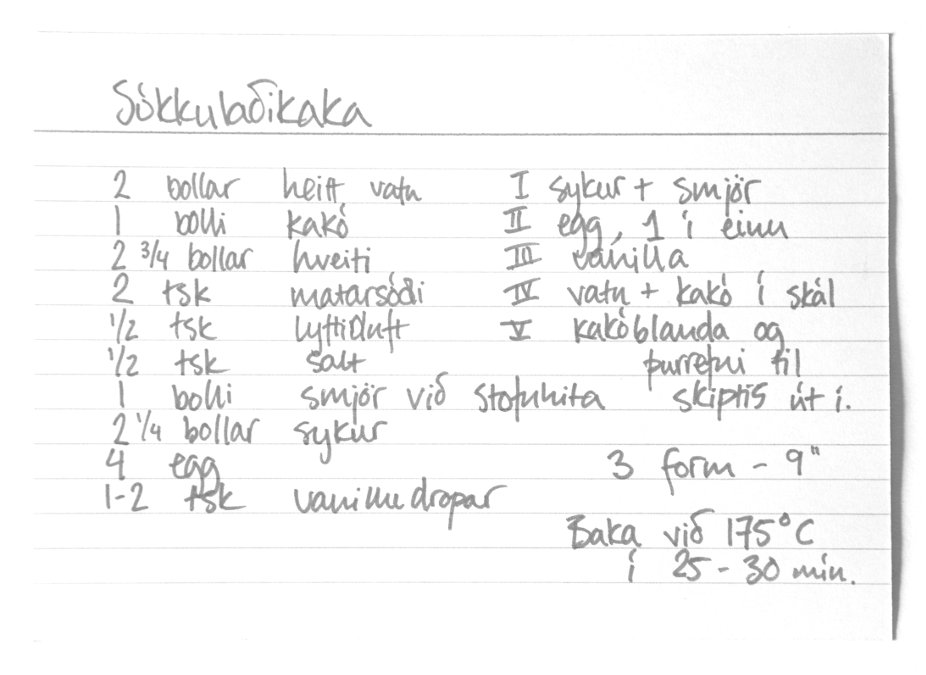 Súkkulaðikaka
2 bollar heitt vatn
1 bolli kakó
2 3/4 bollar hveiti
2 tsk matarsódi
1/2 tsk lyftiduft
1/2 tsk salt
1 bolli smjör við stofuhita
2 1/4 bollar sykur
4 egg
1-2 tsk vanilludropar
I sykur + smjör
II egg, 1 í einu
III vanilla
IV vatn + kakó í skál
V kakóblanda og
þurrefni til
skiptis út í.
3 form - 9"
Baka við 175°C
í 25-30 mín.